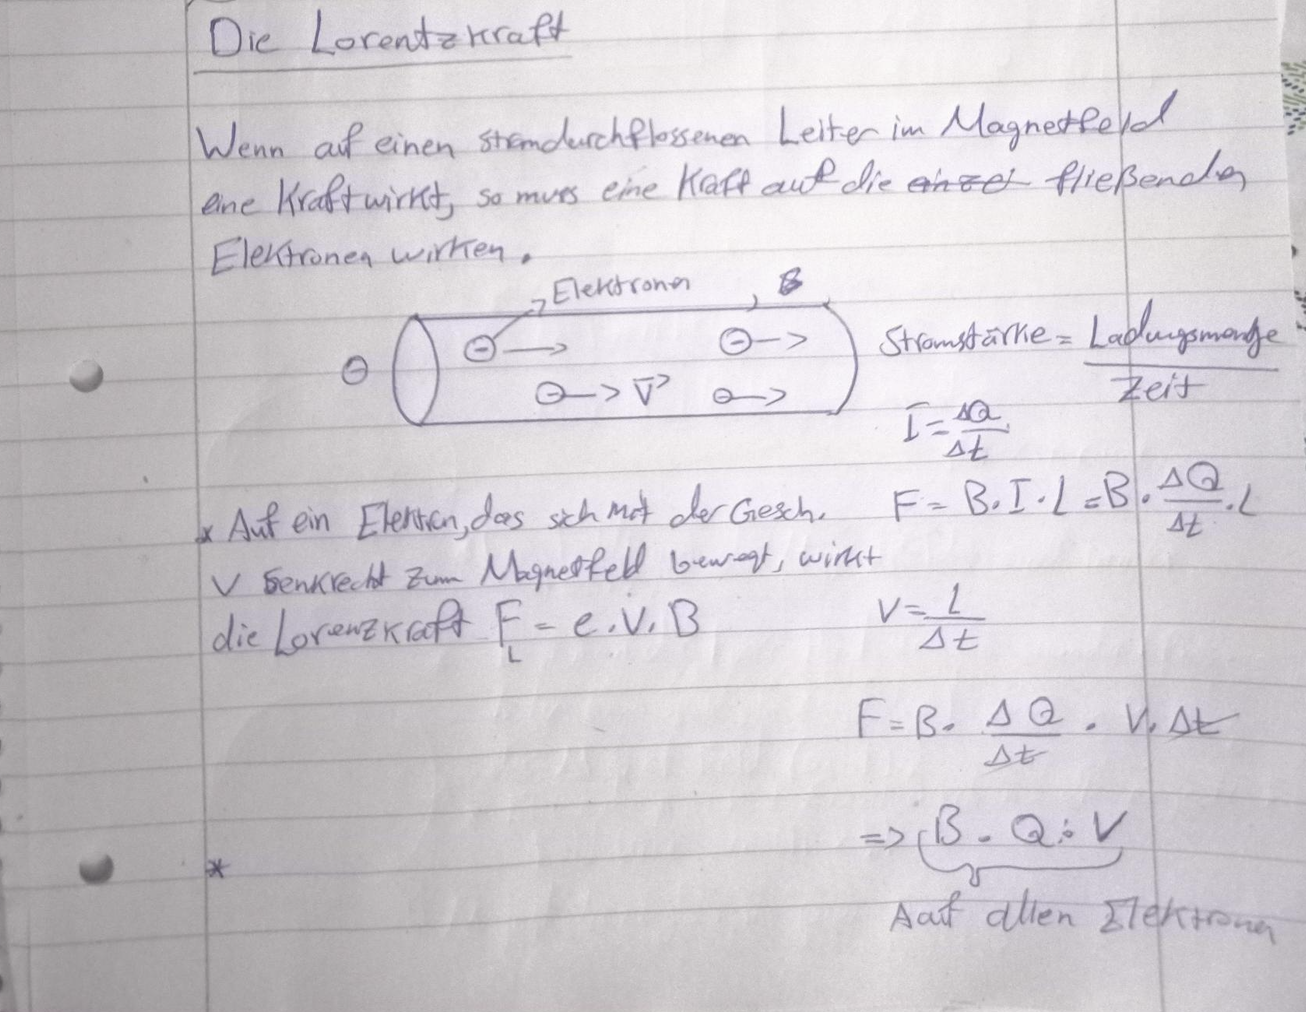 Die Lorentzkraft
Wenn auf einen stromdurchflossenen Leiter im Magnetfeld
eine Kraft wirkt, so muss eine Kraft auf die einzel fließenden
Elektronen wirken.
Elektronen B
⊖ ⊖ ⊖
⊖ v⃗ ⊖
Stromstärke = Ladungsmenge / Zeit
I = ΔQ / Δt
F = B · I · L = B · ΔQ / Δt · L
* Auf ein Elektron, das sich mit der Gesch.
v senkrecht zum Magnetfeld bewegt, wirkt
die Lorenzkraft F_L = e · V · B
V = L / Δt
F = B · ΔQ / Δt · V · Δt
=> B · Q · V
Aauf allen Elektronen
*